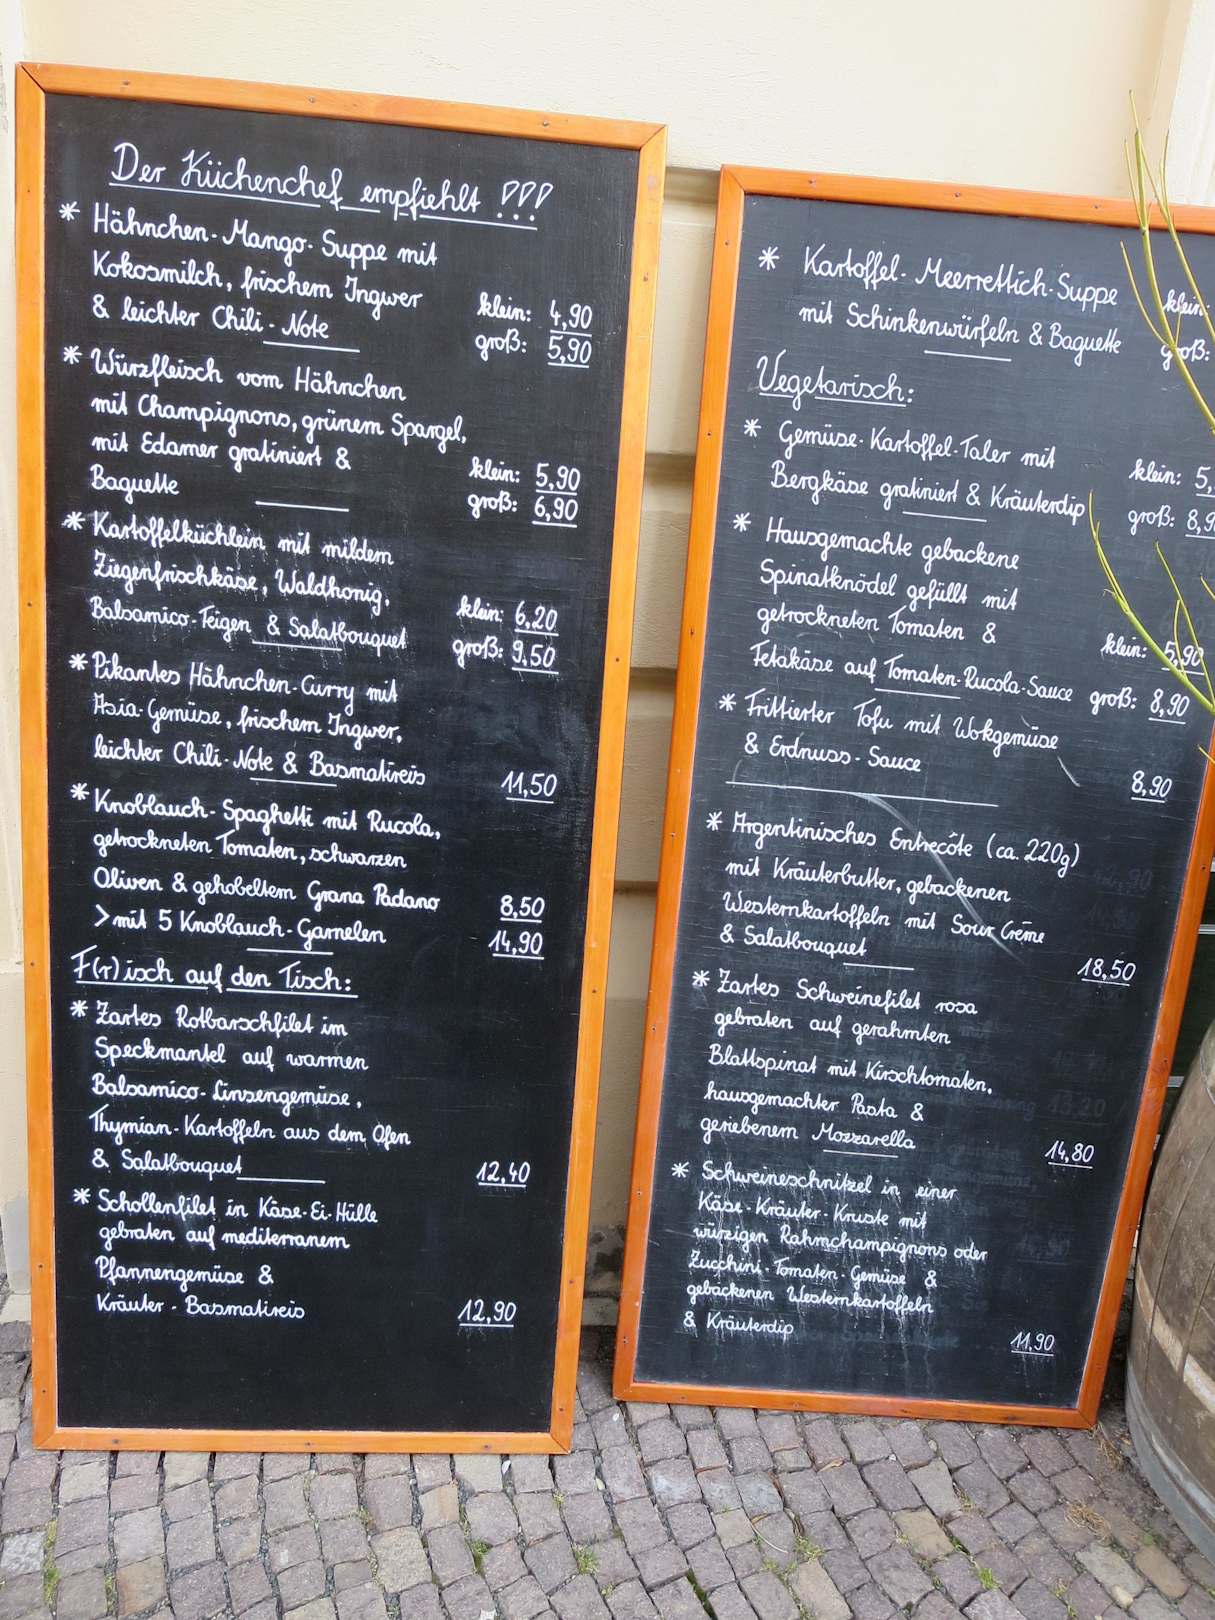 Der Küchenchef empfiehlt !!!
* Hähnchen-Mango-Suppe mit
Kokosmilch, frischem Ingwer
& leichter Chili-Note
klein: 4,90
groß: 5,90
* Würzfleisch vom Hähnchen
mit Champignons, grünem Spargel,
mit Edamer gratiniert &
Baguette
klein: 5,90
groß: 6,90
* Kartoffelküchlein mit mildem
Ziegenfrischkäse, Waldhonig,
Balsamico-Feigen & Salatbouquet
klein: 6,20
groß: 9,50
* Pikantes Hähnchen-Curry mit
Asia-Gemüse, frischem Ingwer,
leichter Chili-Note & Basmatireis 11,50
* Knoblauch-Spaghetti mit Rucola,
getrockneten Tomaten, schwarzen
Oliven & gehobeltem Grana Padano 8,50
> mit 5 Knoblauch-Garnelen 14,90
F(r)isch auf den Tisch:
* Zartes Rotbarschfilet im
Speckmantel auf warmen
Balsamico-Linsengemüse,
Thymian-Kartoffeln aus dem Ofen
& Salatbouquet 12,40
* Schollenfilet in Käse-Ei-Hülle
gebraten auf mediterranem
Pfannengemüse &
Kräuter-Basmatireis 12,90
* Kartoffel-Meerrettich-Suppe klein:
mit Schinkenwürfeln & Baguette groß:
Vegetarisch:
* Gemüse-Kartoffel-Taler mit klein: 5,
Bergkäse gratiniert & Kräuterdip groß: 8,9
* Hausgemachte gebackene
Spinatknödel gefüllt mit
getrockneten Tomaten & klein: 5,90
Fetakäse auf Tomaten-Rucola-Sauce groß: 8,90
* Frittierter Tofu mit Wokgemüse
& Erdnuss-Sauce 8,90
* Argentinisches Entrecôte (ca. 220g)
mit Kräuterbutter, gebackenen
Westernkartoffeln mit Sour Crème
& Salatbouquet 18,50
* Zartes Schweinefilet rosa
gebraten auf gerahmten
Blattspinat mit Kirschtomaten,
hausgemachter Pasta &
geriebenem Mozzarella 14,80
* Schweineschnitzel in einer
Käse-Kräuter-Kruste mit
würzigen Rahmchampignons oder
Zucchini-Tomaten-Gemüse &
gebackenen Westernkartoffeln
& Kräuterdip 11,90